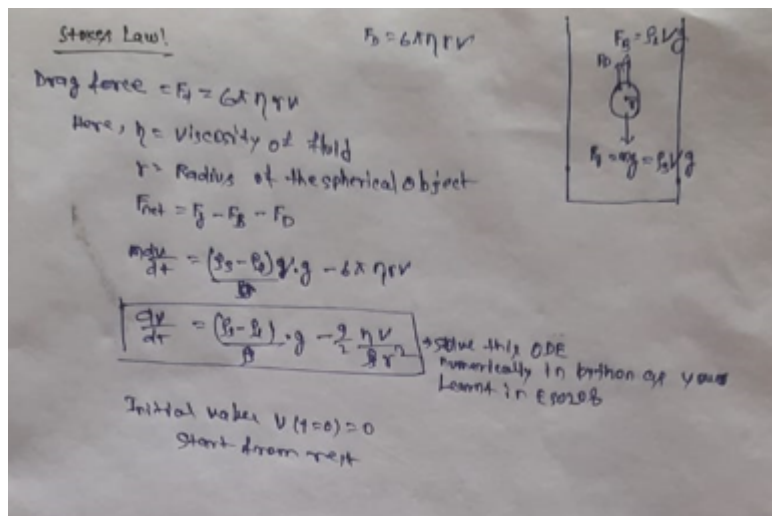 Stokes Law!
F_D = 6πηrv
Drag force = F_d = 6πηrv
Here, η = viscosity of fluid
r = Radius of the spherical object
F_net = F_g - F_B - F_D
m dv/dt = (ρ_s - ρ_l) V.g - 6πηrv
dv/dt = (ρ_s - ρ_l)/ρ_s . g - 9/2 ηv/ρ_s r²
→ Solve this ODE
numerically in python as you
Learnt in ESO208
Initial value v(t=0) = 0
Start from rest
F_B = ρ_l Vg
F_D
r
F_g = mg = ρ_s Vg